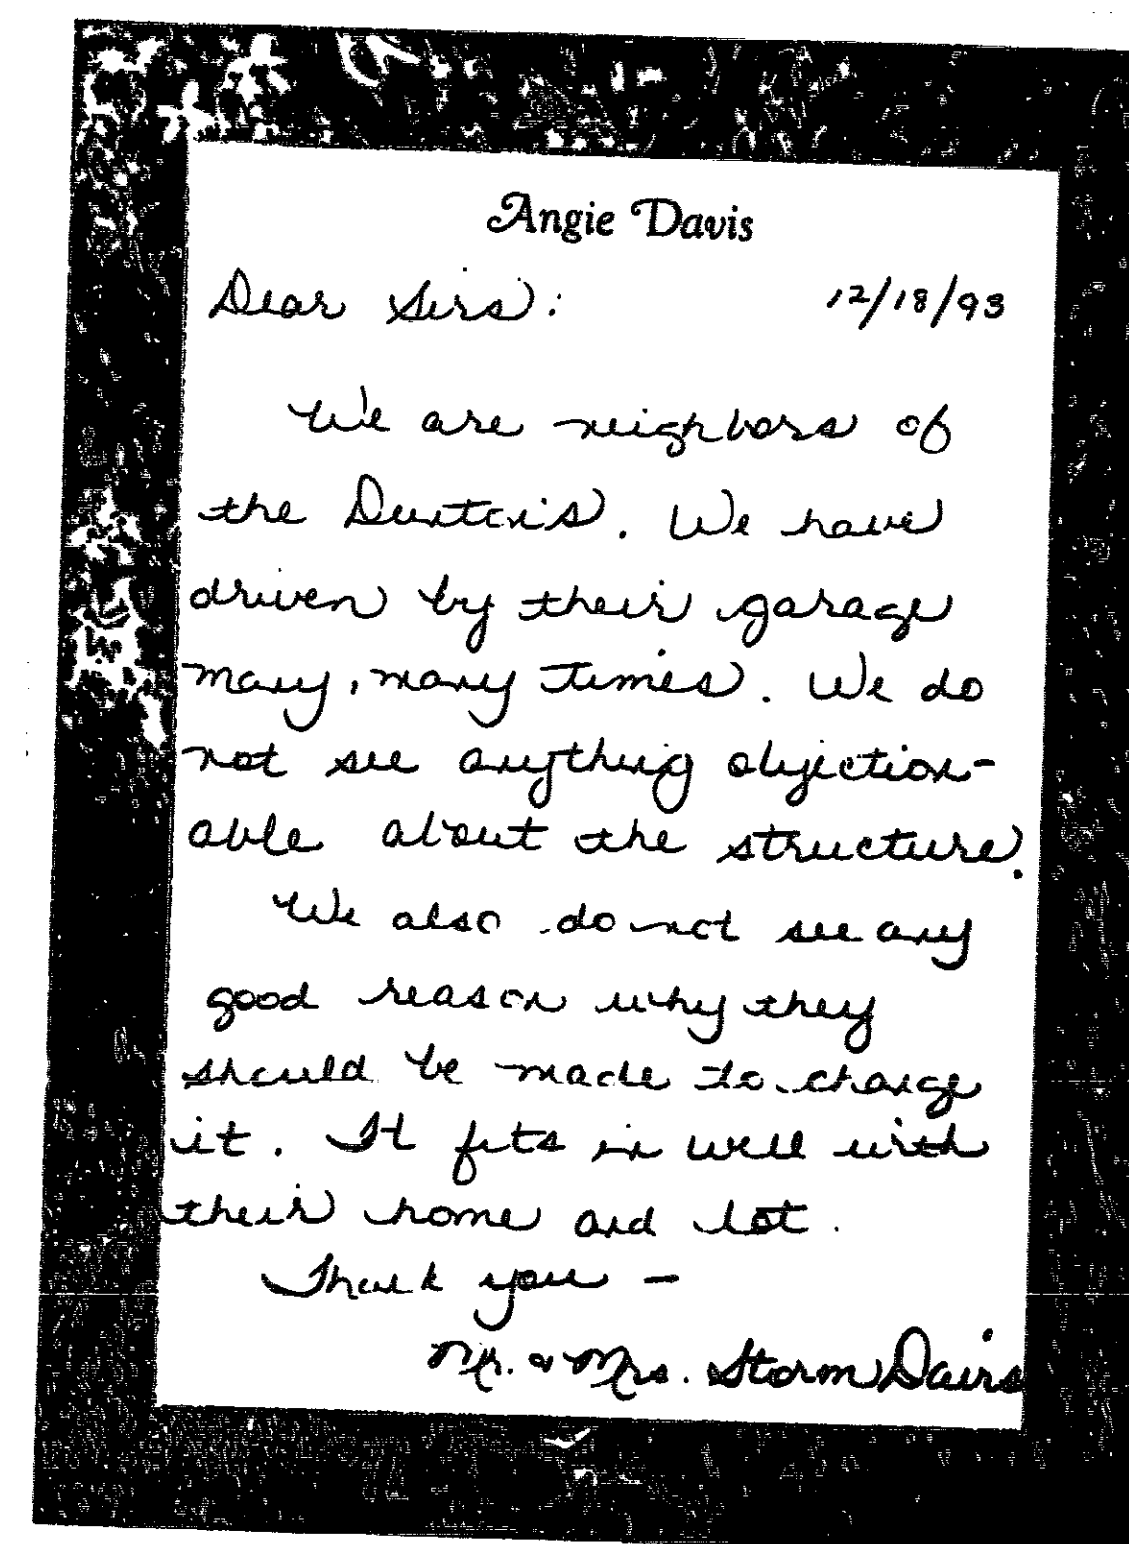 Angie Davis
Dear Sirs: 12/18/93
We are neighbors of
the . We have
driven by their garage
many, many times. We do
not see anything objection-
able about the structure.
We also do not see any
good reason why they
should be made to change
it. It fits in well with
their home and lot.
Thank you —
Mr. & Mrs. Storm Davis